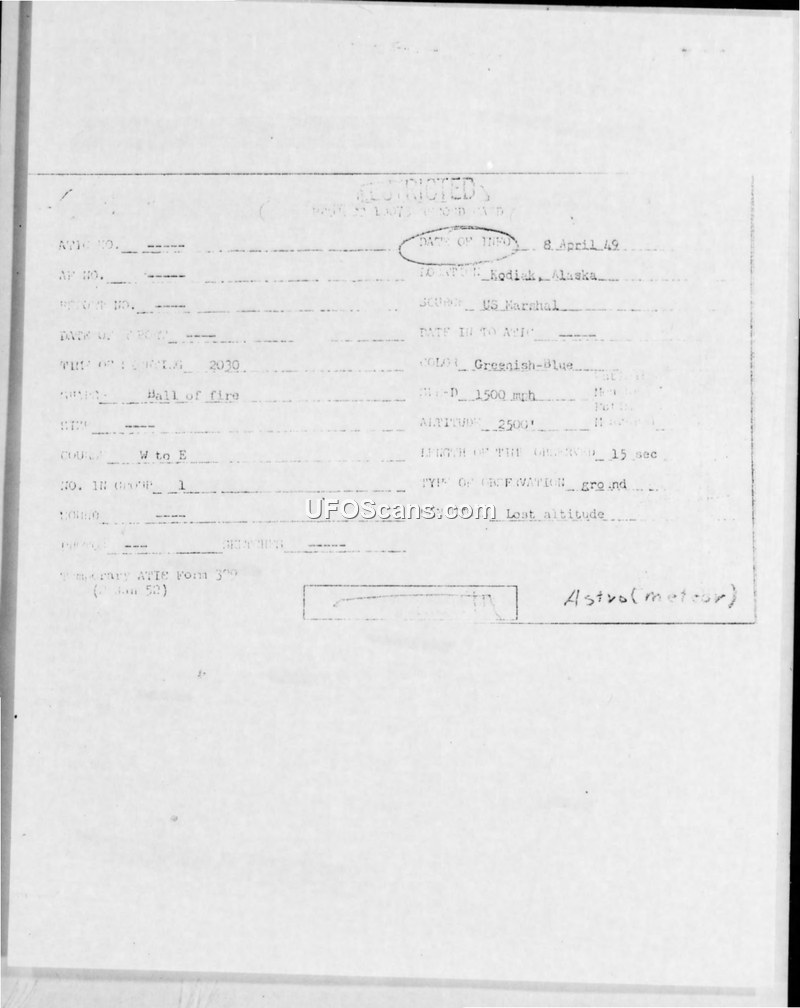 RESTRICTED
ATIC NO. ----- DATE OF INFO 8 April 49
AF NO. ----- LOCATION Kodiak, Alaska
REPORT NO. ---- SOURCE US Marshal
DATE OF REPORT ---- DATE IN TO ATIC -----
TIME OF SIGHTING 2030 COLOR Greenish-Blue
SHAPE Ball of fire SPEED 1500 mph
SIZE ---- ALTITUDE 2500'
COURSE W to E LENGTH OF TIME OBSERVED 15 sec
NO. IN GROUP 1 TYPE OF OBSERVATION ground
SOUND ---- Lost altitude
UFOScans.com
PHOTOS --- SKETCHES -----
Temporary ATIC Form
Jan 52)
Astro(meteor)